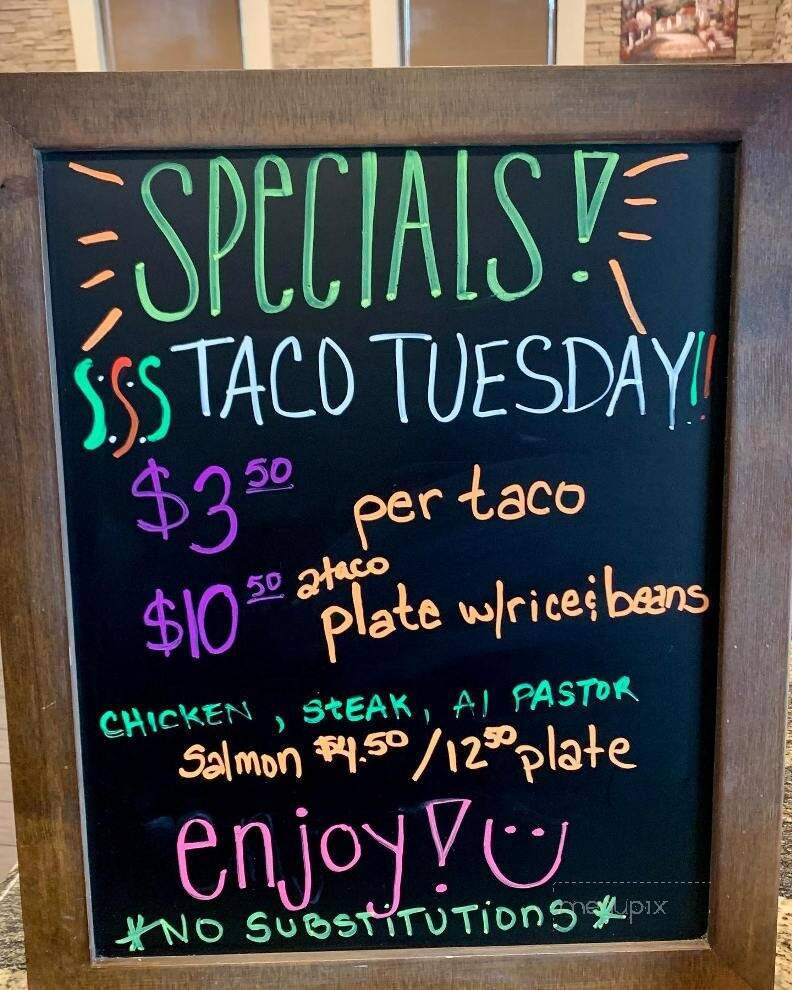 SPECIALS!
TACO TUESDAY!!!
$3.50 per taco
$10.50 2 taco plate w/rice & beans
CHICKEN, STEAK, Al PASTOR
Salmon $4.50 / 12.50 plate
enjoy! :)
*NO SUBSTITUTIONS*
menupix